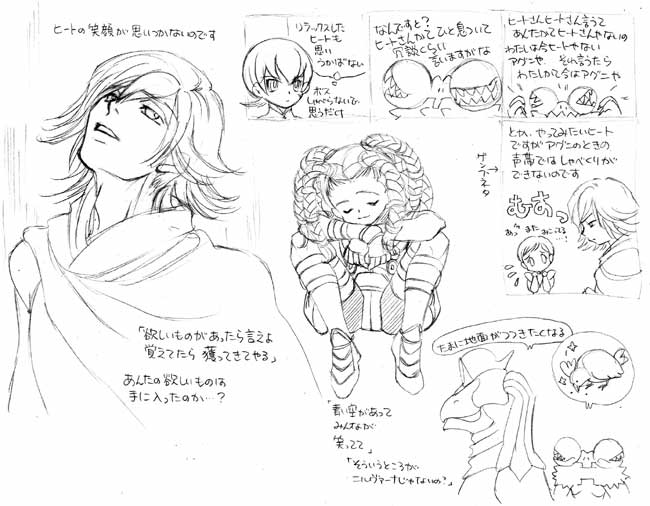 ヒートの笑顔が思いつかないのです
リラックスした
ヒートも
思い
うかばない
ボス
しゃべらないで
思うだす
なんですと?
ヒートさんかて ひと息ついて
冗談くらい
言いますがな
ヒートさんヒートさん言うて
あんたかてヒートさんやないの
わたしは今ヒートやない
アグニや、それ言うたら
わたしかて今はアグニや
とか、やってみたいヒート
ですがアグニのときの
声帯ではしゃべくりが
できないのです
ゲンブネタ
→
むあっ
あっ また
「欲しいものがあったら言えよ
覚えてたら 獲ってきてやる」
あんたの欲しいものは
手に入ったのか…?
「青い空があって
みんなが
笑ってて」
「そういうところが
ニルヴァーナじゃないの?」
たまに地面がつつきたくなる